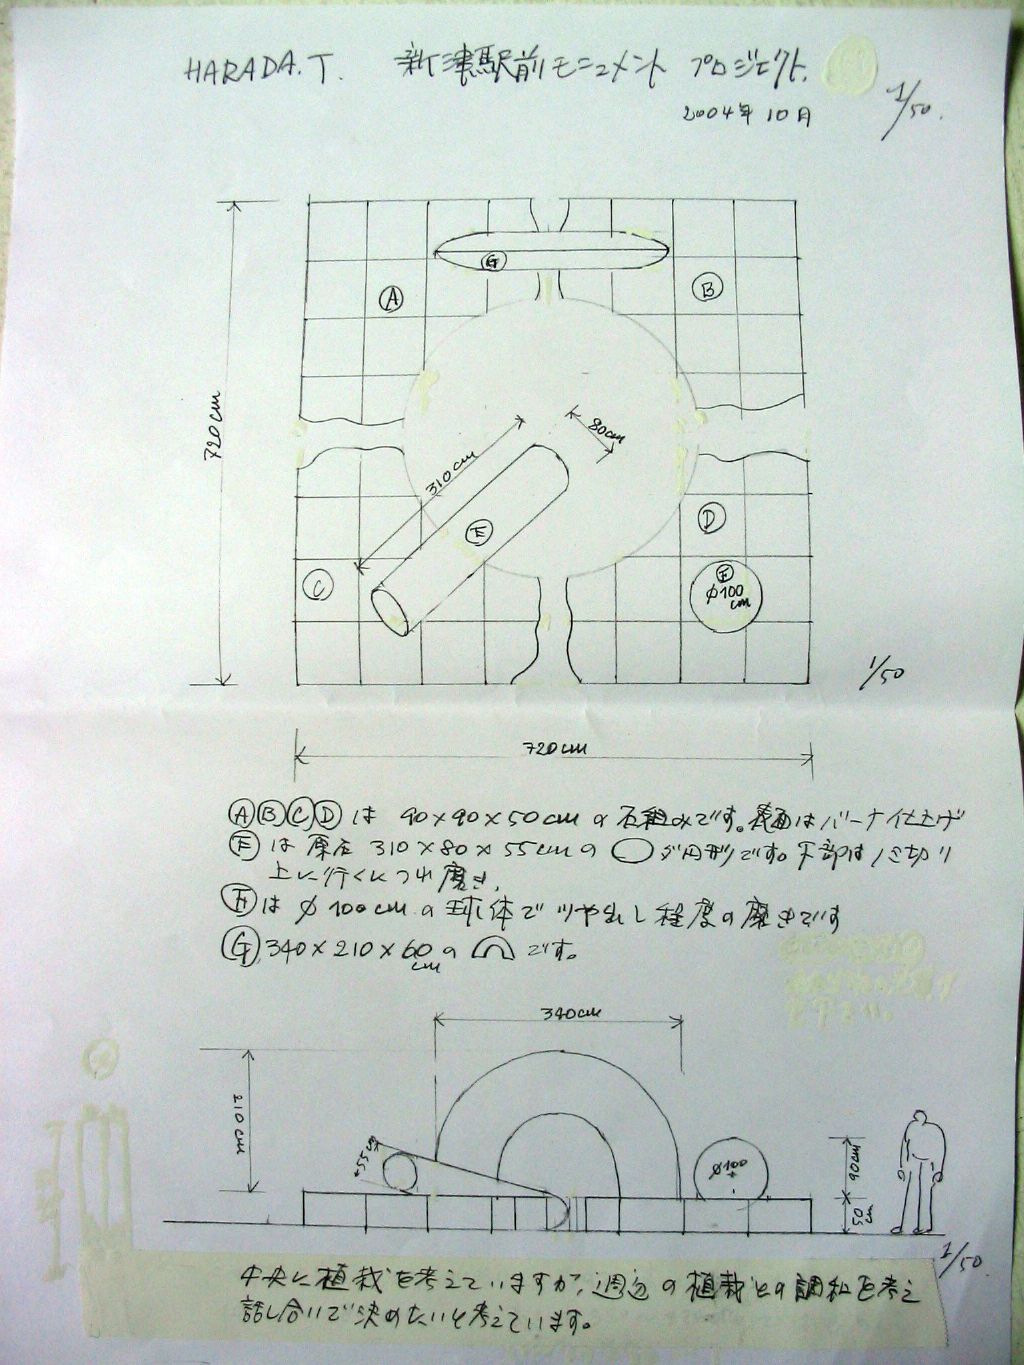 HARADA.T. 新津駅前モニュメント プロジェクト.
2004年 10月
1/50.
G
A
B
720cm
80cm
310cm
E
D
C
F
φ100
cm
1/50
720cm
ⒶⒷⒸⒹは 90×90×50cmの石組みです。表面はバーナー仕上げ
Ⓔは原石 310×80×55cmの ダ円形です。下部は 切り
上に行くにつれ磨き.
Ⓕは φ100cmの球体でツヤ出し程度の磨きです
Ⓖ 340×210×60cmの です。
340cm
210cm
55
φ100
90cm
50cm
1/50
中央に植栽を考えていますが、周辺の植栽との調和を考え
話し合いで決めたいと考えています。